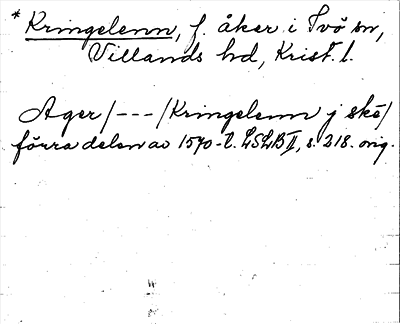 * Kringelenn, f. åker i Ivö sn,
Villands hd, Krist. l.
Ager/---/Kringelenn j skö/
förra delen av 1570-t. LSLB II, s. 218. orig.